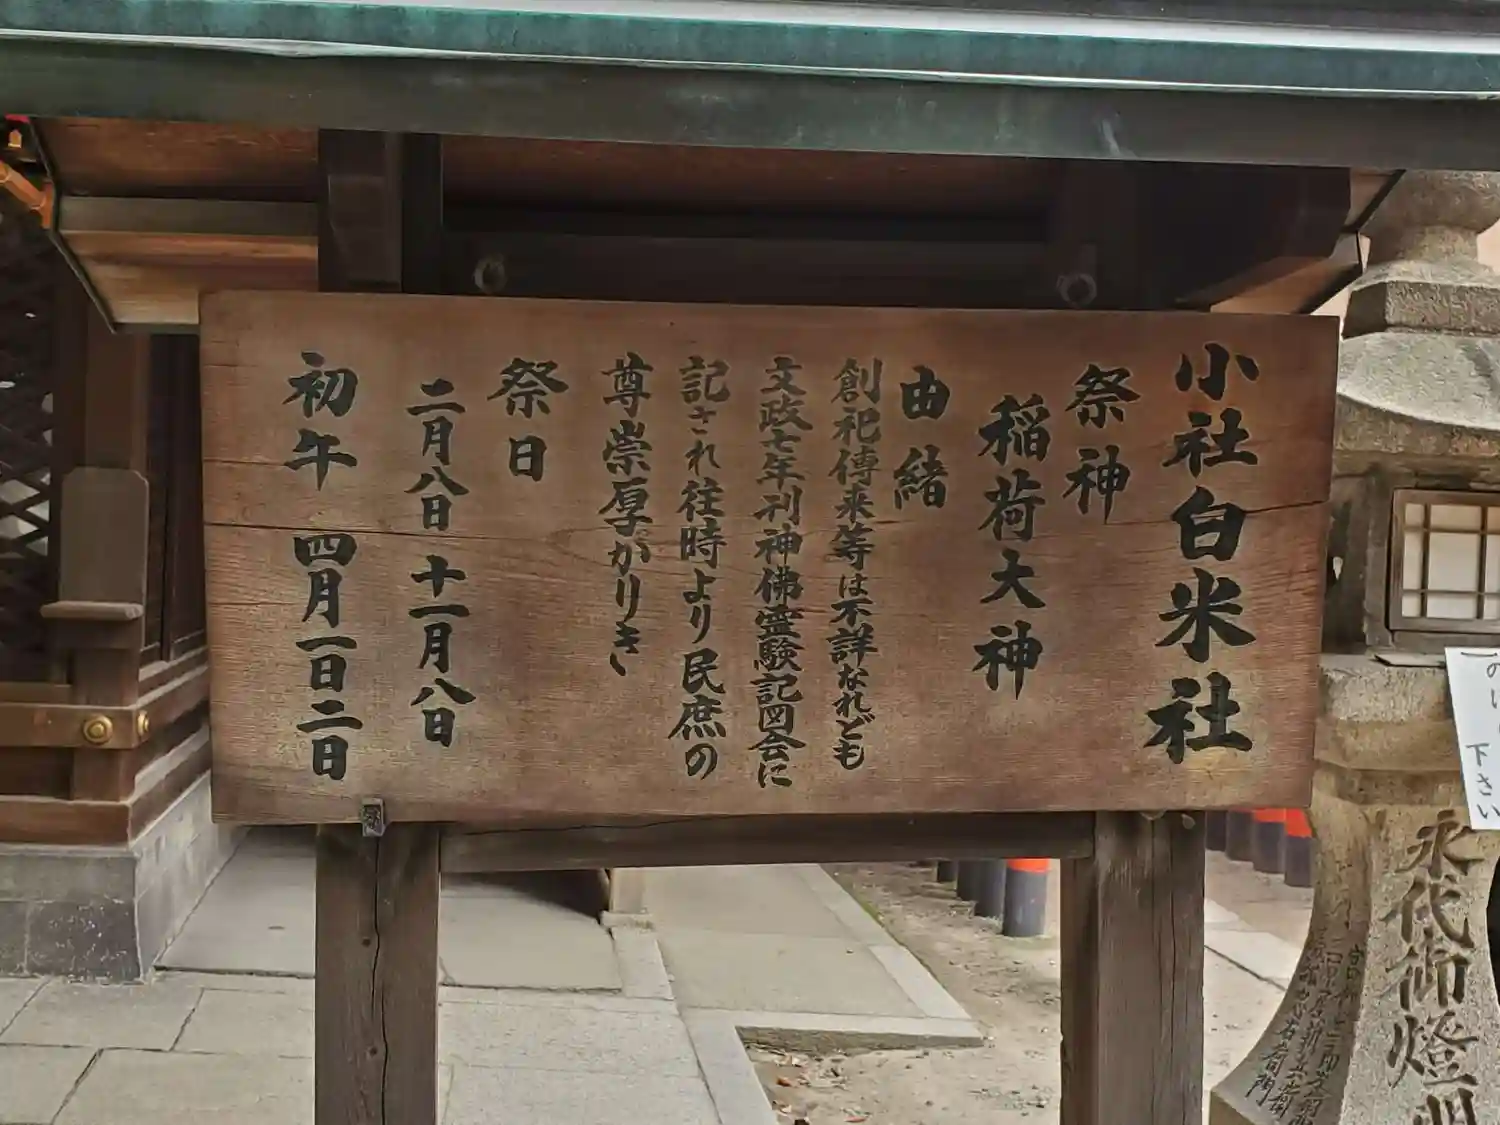 小社白米社
祭神
稲荷大神
由緒
創祀傳来等は不詳なれども
文政七年刊神佛霊験記図会に
記され往時より民庶の
尊崇厚かりき
祭日
二月八日 十一月八日
初午 四月一日二日
下さい
永代御燈明